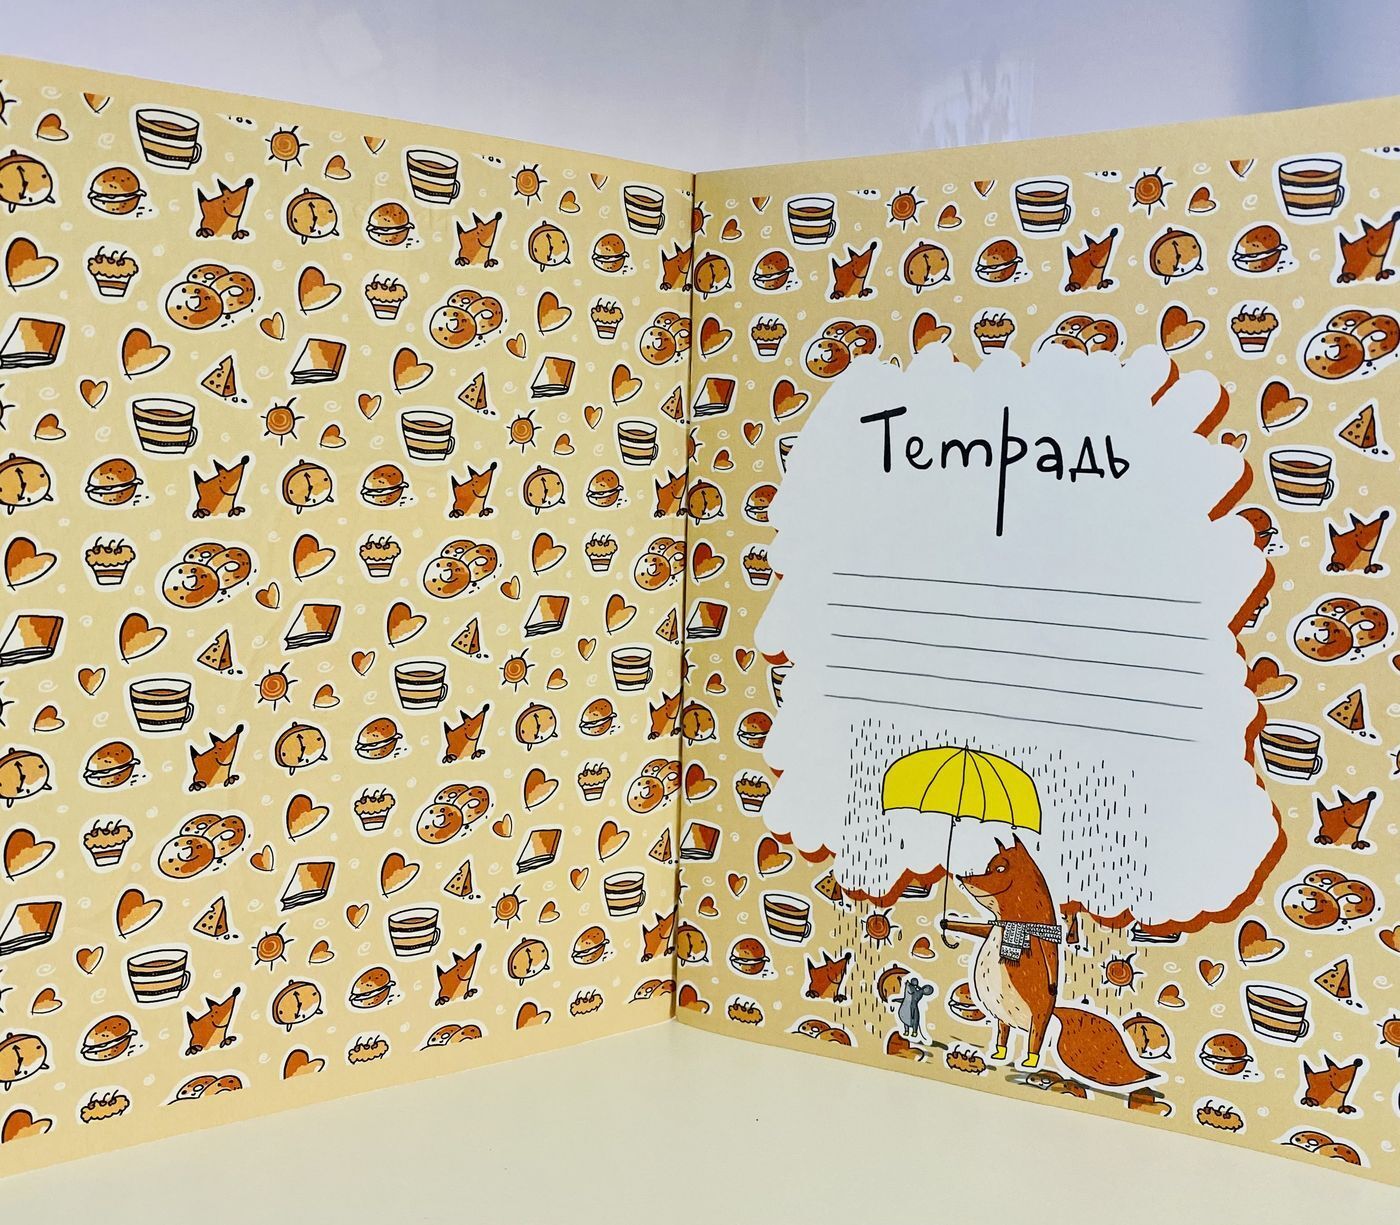 Тетрадь